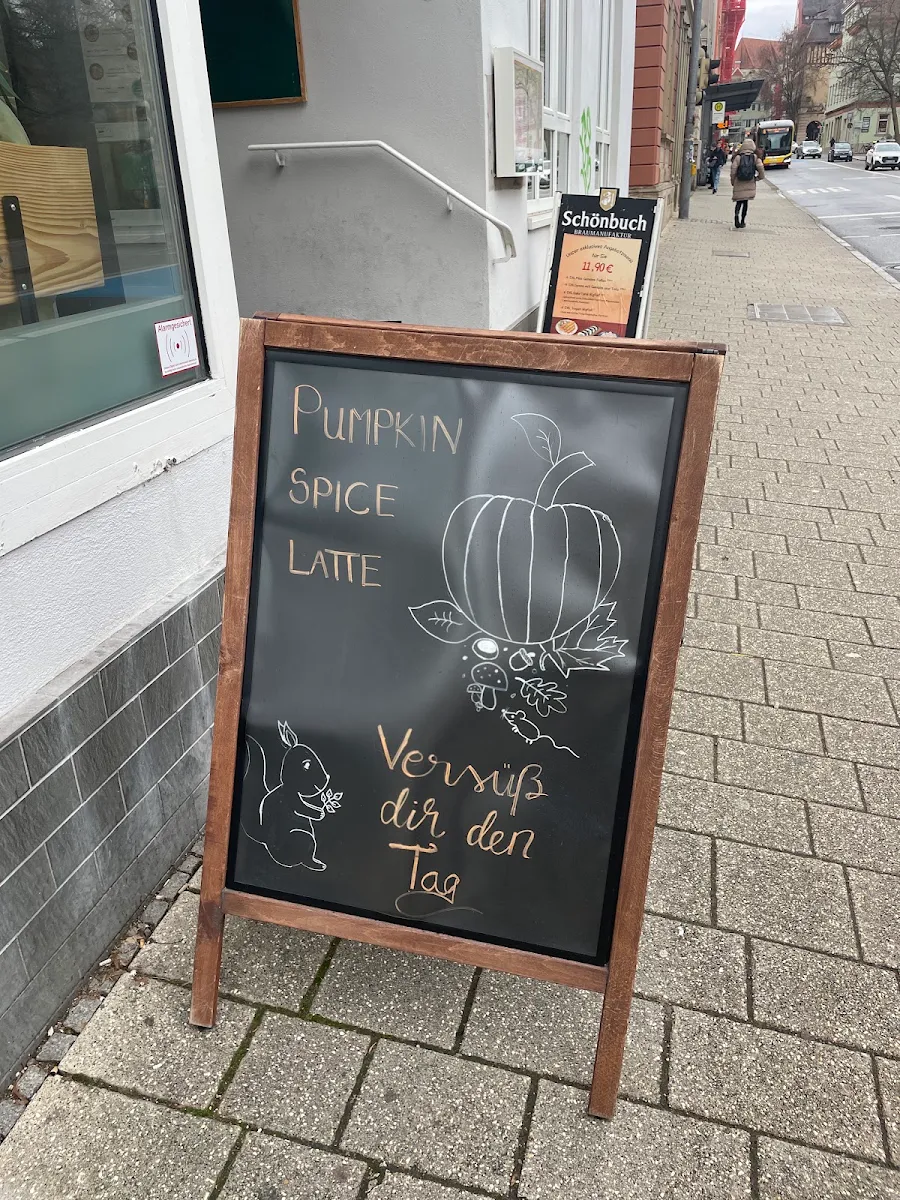 Alarmgesichert
Schönbuch
BRAUMANUFAKTUR
für Sie
11,90 €
PUMPKIN
SPICE
LATTE
Versüß
dir den
Tag